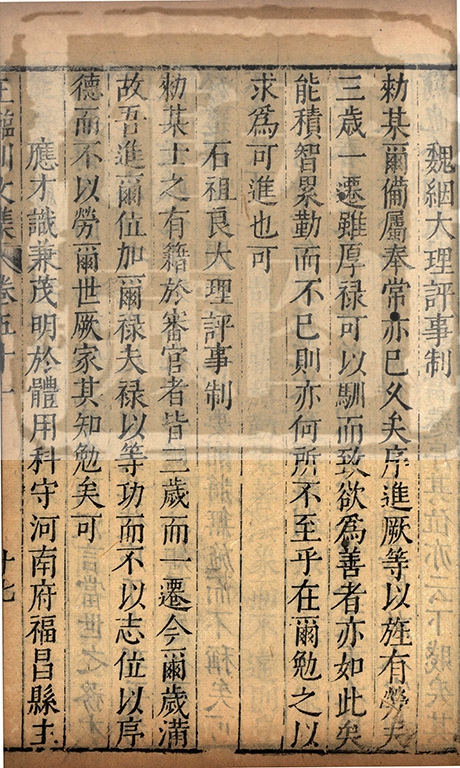 魏絪大理評事制
勑某爾備屬奉常亦已久矣序進厥等以旌有勞夫
三歳一遷雖厚禄可以馴而致欲為善者亦如此矣
能積智累勤而不已則亦何所不至乎在爾勉之以
求為可進也可
石祖良大理評事制
勑某士之有籍於審官者皆三歳而一遷今爾歳滿
故吾進爾位加爾禄夫禄以等功而不以志位以序
德而不以勞爾世厥家其知勉矣可
應才識兼茂明於體用科守河南府福昌縣主
王臨川文集 卷五十一 十七